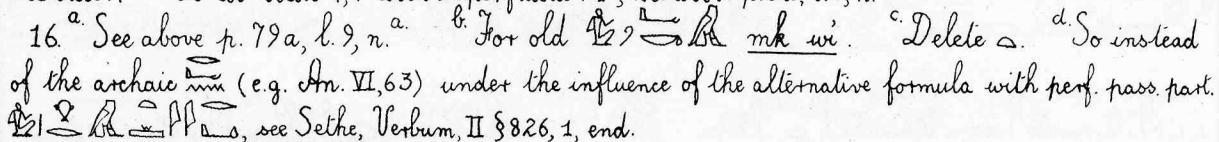 16. a. See above p. 79a, l. 9, n. a. b. For old mk wi. c. Delete 𓏏. d. So instead
of the archaic (e.g. An. VI, 63) under the influence of the alternative formula with perf. pass. part.
, see Sethe, Verbum, II § 826, 1, end.